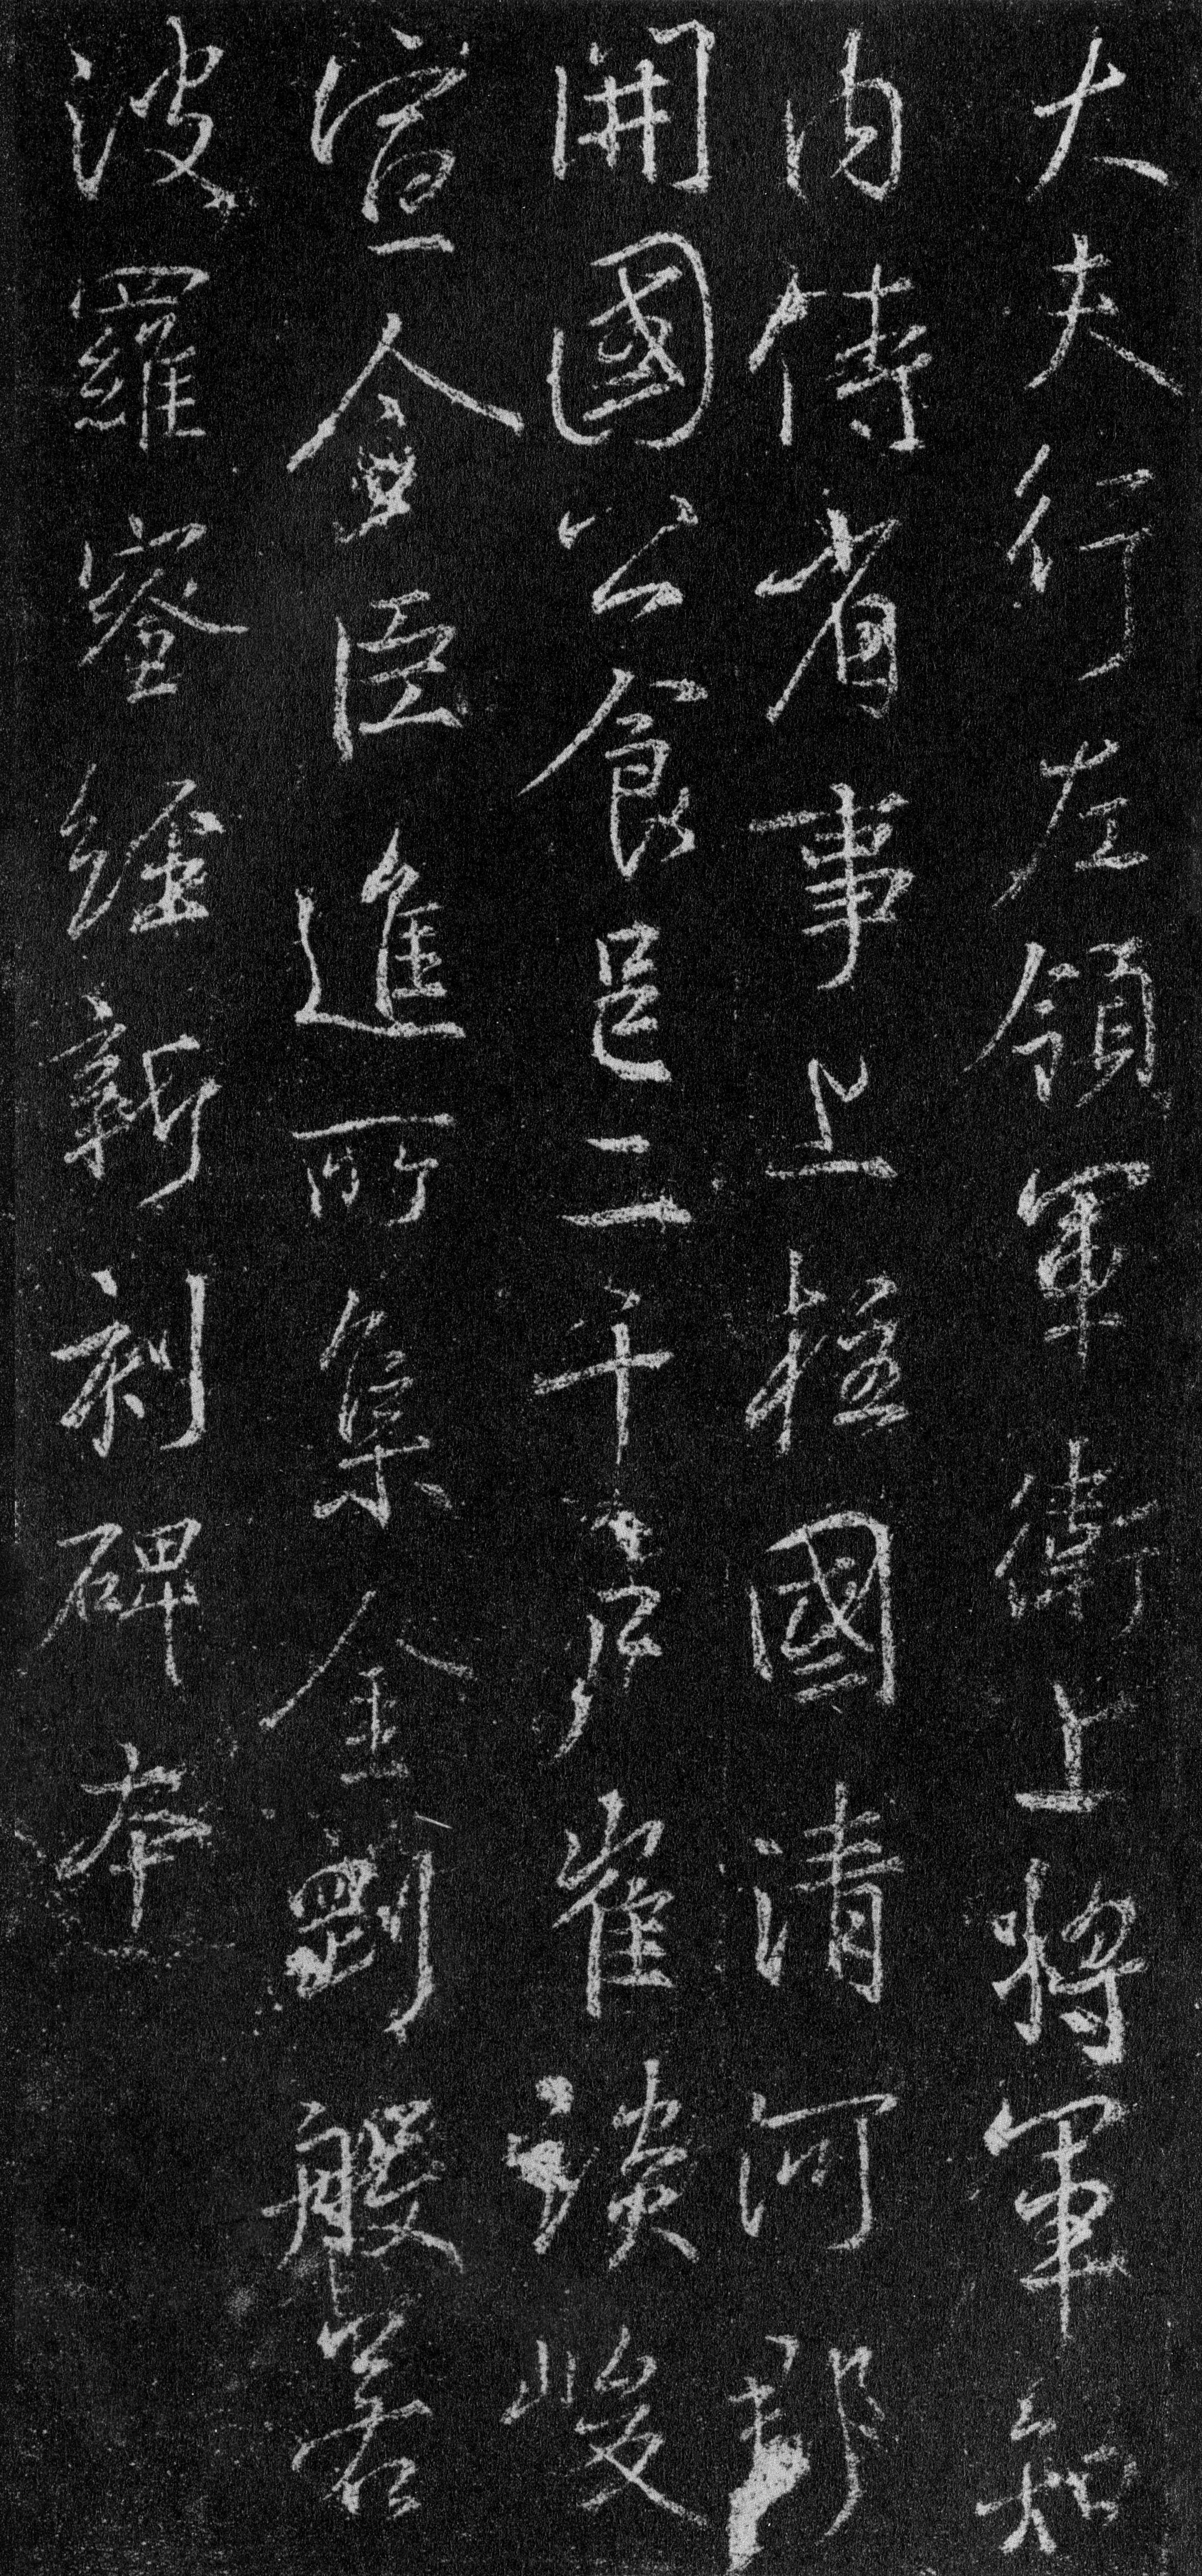 大夫行左領軍衛上將軍知
內侍省事上柱國清河郡
開國公食邑二千戶崔潭峻
宣令臣進所集金剛般若
波羅蜜經新刻碑本